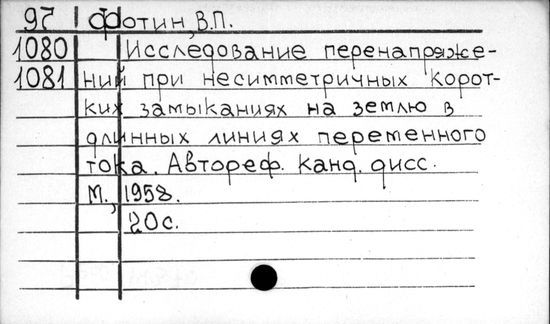 97 Фотин, В.П.
1080 Исследование перенапряже-
1081 ний при несимметричных корот-
ких замыканиях на землю в
длинных линиях переменного
тока. Автореф. Канд. дисс.
М., 1958.
20с.